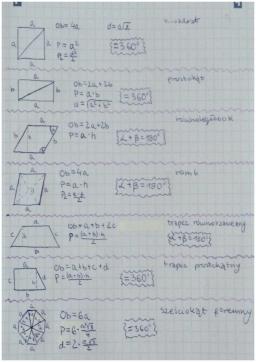 Ob=4a d=a√2 kwadrat
P=a²
[=360°]
Ob=2a+2b prostokąt
P=a·b
[=360°]
Ob=2a+2b równoległobok
P=a·h
α+β=180°
Ob=4a romb
P=a·h
α+β=180°
Ob=a+b+2c trapez równoramienny
P=(a+b)·h/2
α+β=180°
Ob=a+b+c+d trapez prostokątny
P=(a+b)·h/2
[=360°]
Ob=6a sześciokąt foremny
P=6·a²√3/4
d=2·a√3/2